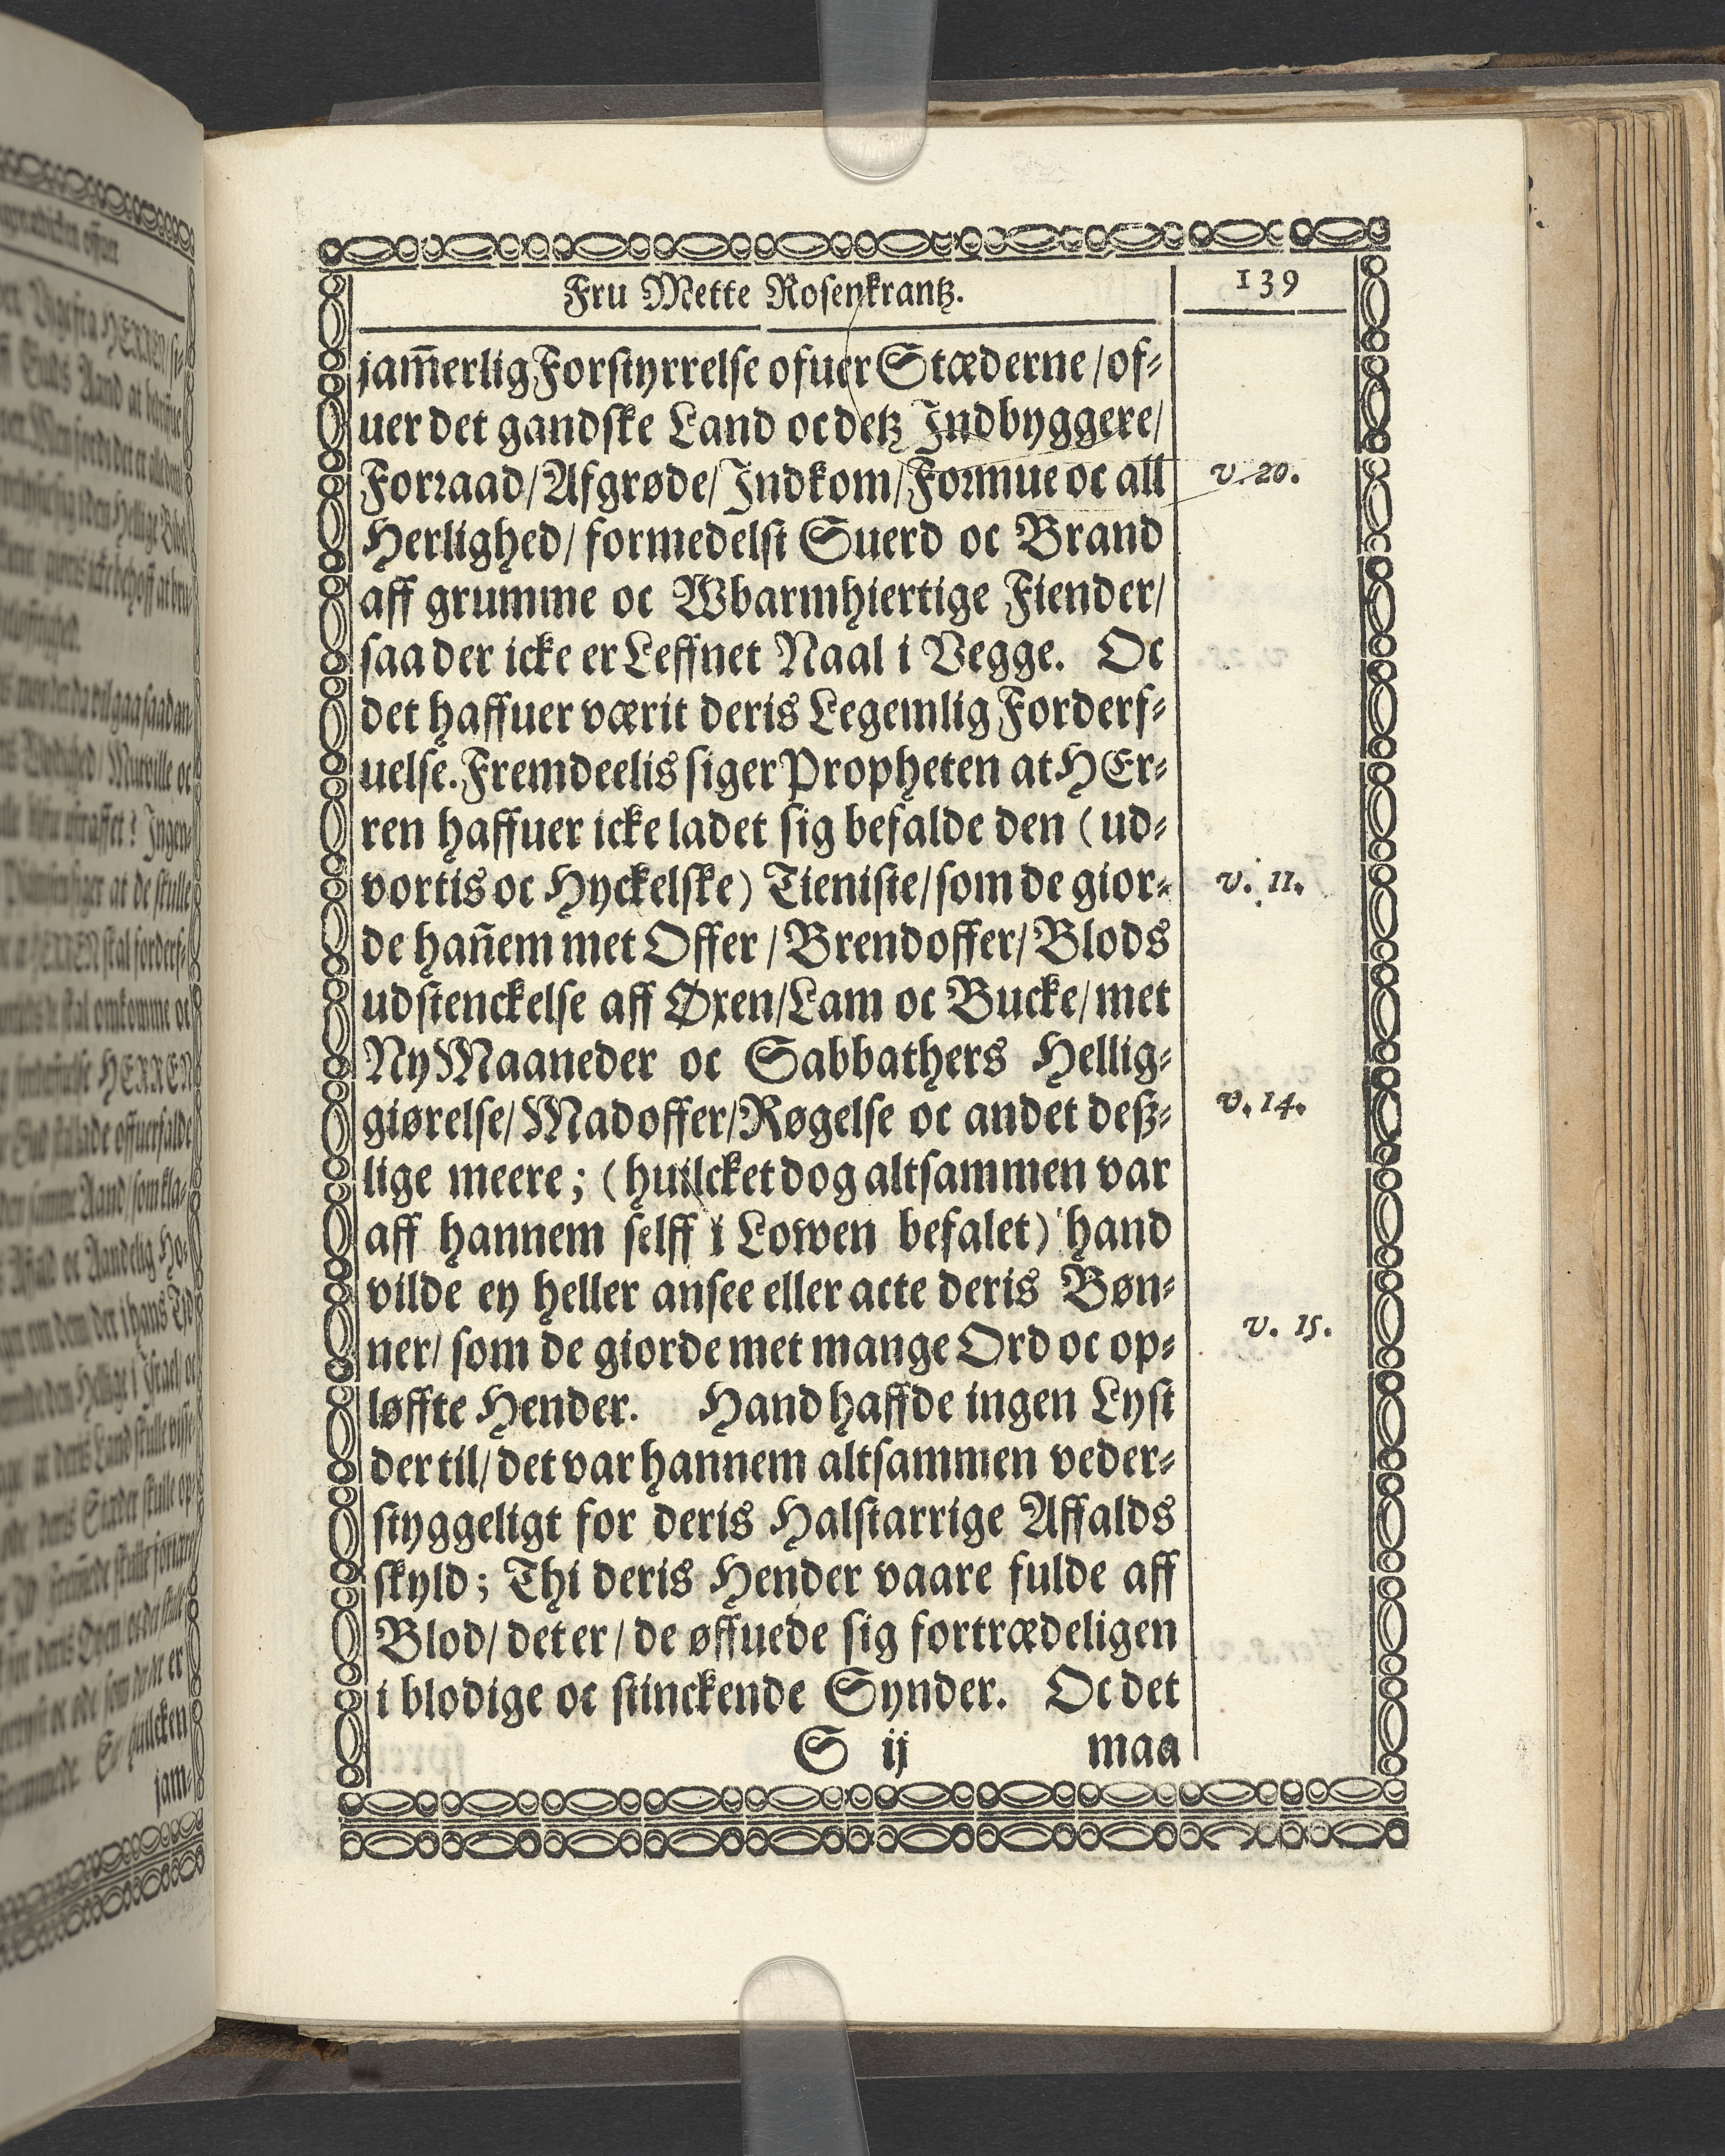 Fru Mette Rosenkrantz.
139
jam̃erlig Forstyrrelse ofuer Stæderne / of-
uer det gandske Land oc detz Indbyggere /
Forraad / Afgrøde / Indkom / Formue oc all
v. 20.
Herlighed / formedelst Suerd oc Brand
aff grumme oc Wbarmhiertige Fiender /
saa der icke er Leffnet Naal i Vegge. Oc
det haffuer værit deris Legemlig Forderf-
uelse. Fremdeelis siger Propheten at HEr-
ren haffuer icke ladet sig befalde den ( ud-
vortis oc Hyckelske ) Tieniste / som de gior-
v. 11.
de hañem met Offer / Brendoffer / Blods
udstenckelse aff Øxen / Lam oc Bucke / met
Ny Maaneder oc Sabbathers Hellig-
giørelse / Madoffer / Røgelse oc andet deß-
v. 14.
lige meere ; ( huilcket dog altsammen var
aff hannem selff i Lowen befalet ) hand
vilde ey heller ansee eller acte deris Bøn-
v. 15.
ner / som de giorde met mange Ord oc op-
løffte Hender. Hand haffde ingen Lyst
der til / det var hannem altsammen veder-
styggeligt for deris Halstarrige Affalds
skyld ; Thi deris Hender vaare fulde aff
Blod / det er / de øffuede sig fortrædeligen
i blodige oc stinckende Synder. Oc det
S ij
maa